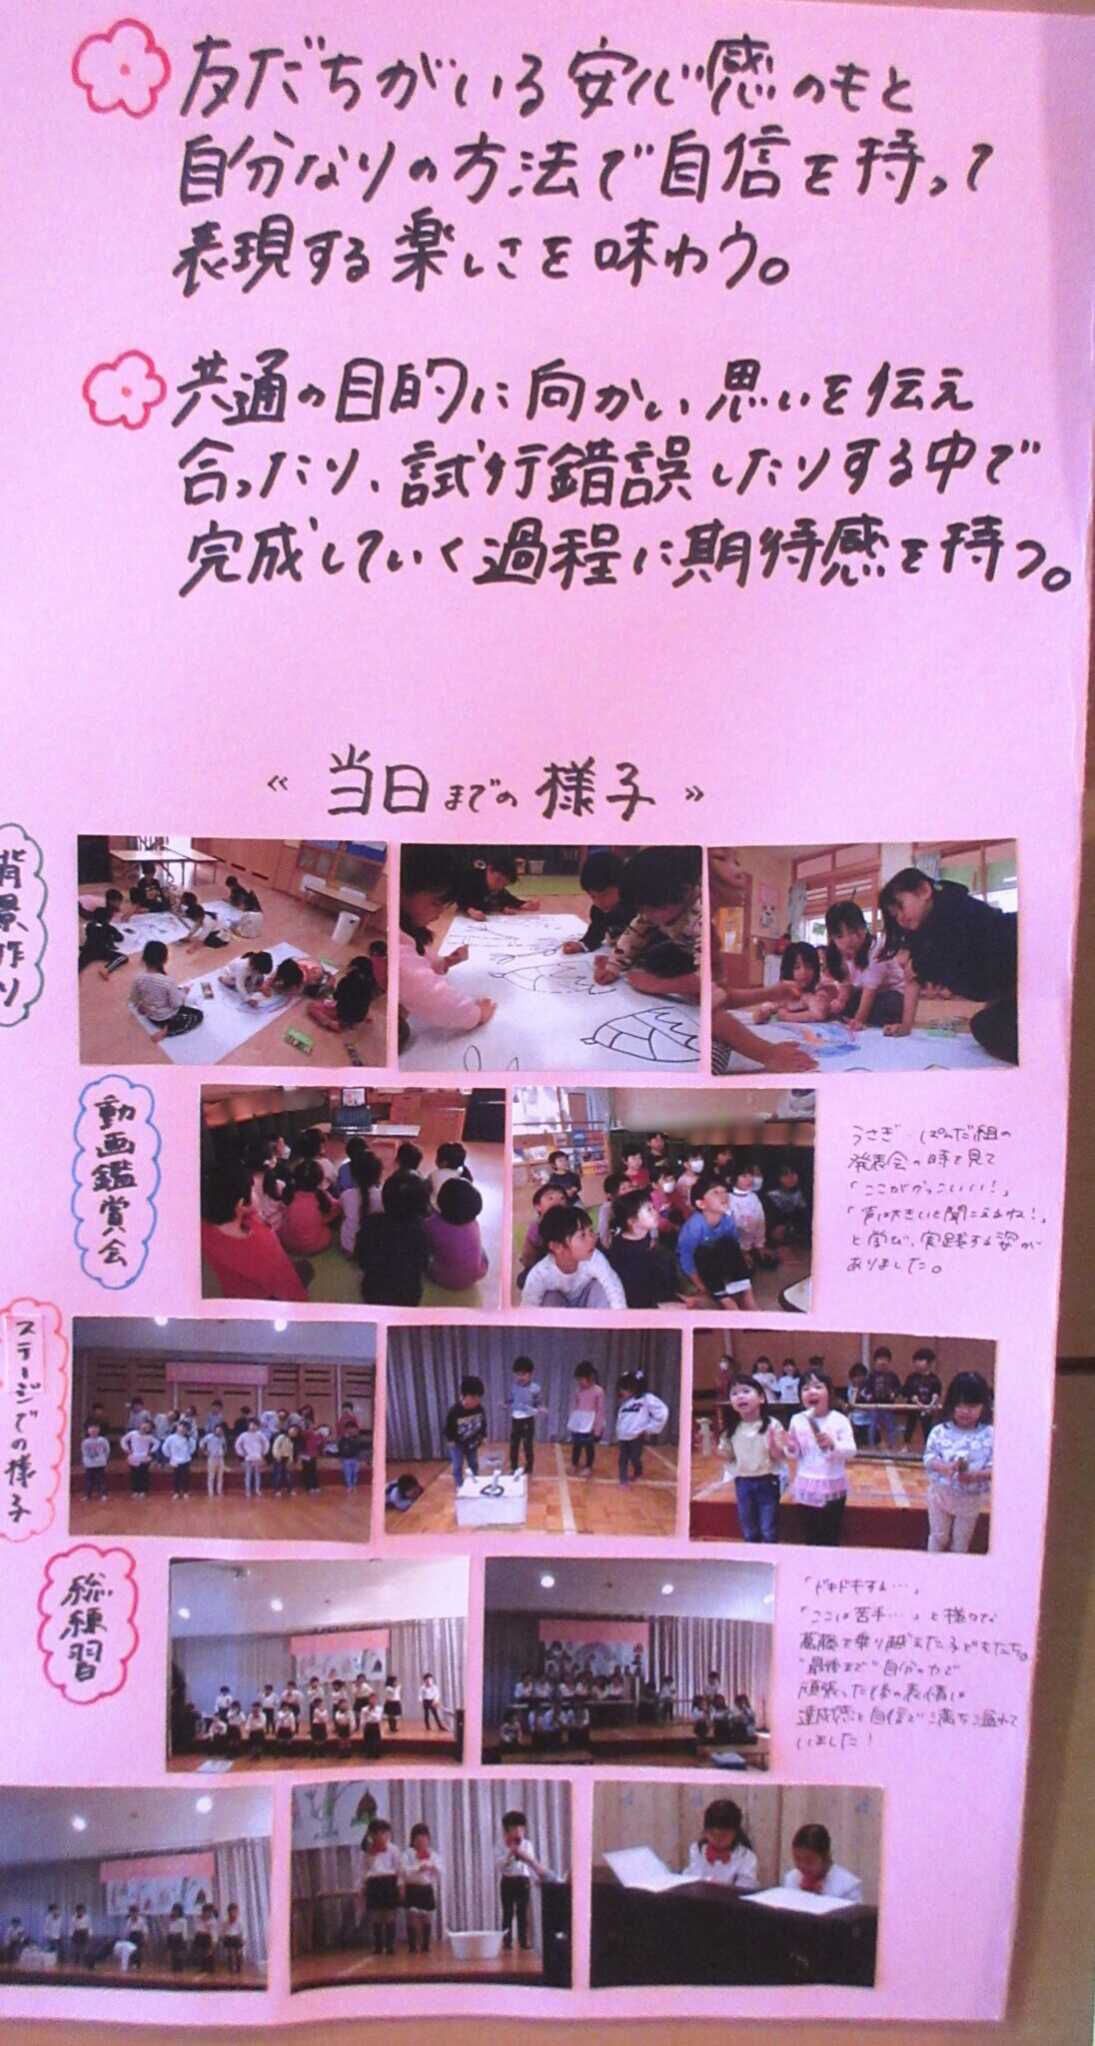 友だちがいる安心感のもと
自分なりの方法で自信を持って
表現する楽しさを味わう。
共通の目的に向かい思いを伝え
合ったり、試行錯誤したりする中で
完成していく過程に期待感を持つ。
≪ 当日までの様子 ≫
背景作り
動画鑑賞会
うさぎ・ぱんだ組の
発表会の時を見て
「ここがかっこいい!」
「声は大きいと聞こえるね!」
と学び、実践する姿が
ありました。
ステージでの様子
総練習
「ドキドキする…」
「ここは苦手…」と様々な
葛藤を乗り越えた子どもたち。
"最後まで"自分の力で
頑張った後の表情は
達成感と自信で満ち溢れて
いました!